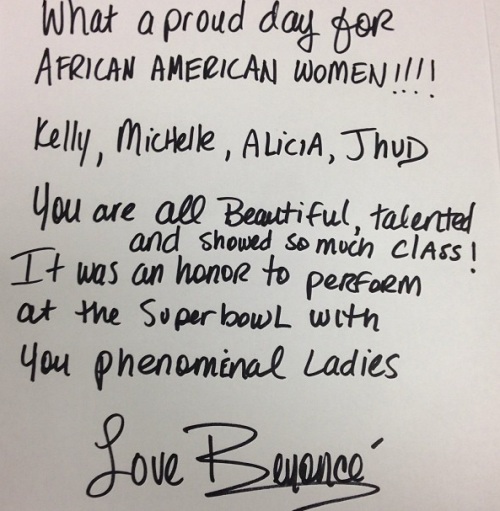 What a proud day for
AFRICAN AMERICAN WOMEN!!!!
Kelly, Michelle, ALICIA, JHUD
You are all Beautiful, talented
and showed so much CLASS!
It was an honor to perform
at the Superbowl with
you phenominal Ladies
Love Beyoncé